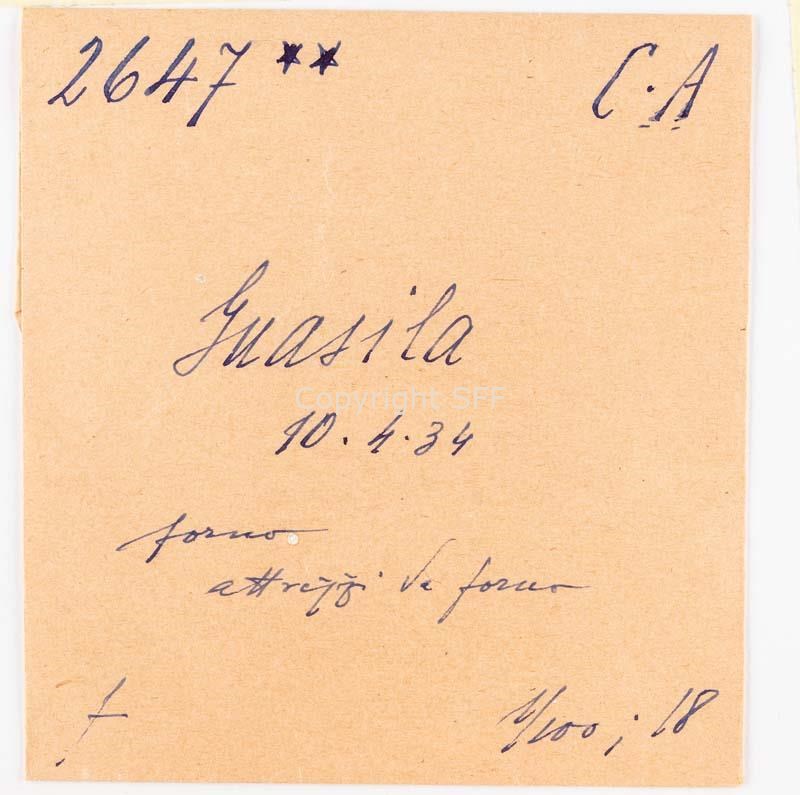 2647 ** C.A
Guasila
Copyright SFF
10.4.34
forno
attrezzi da forno
f
1/100; 18